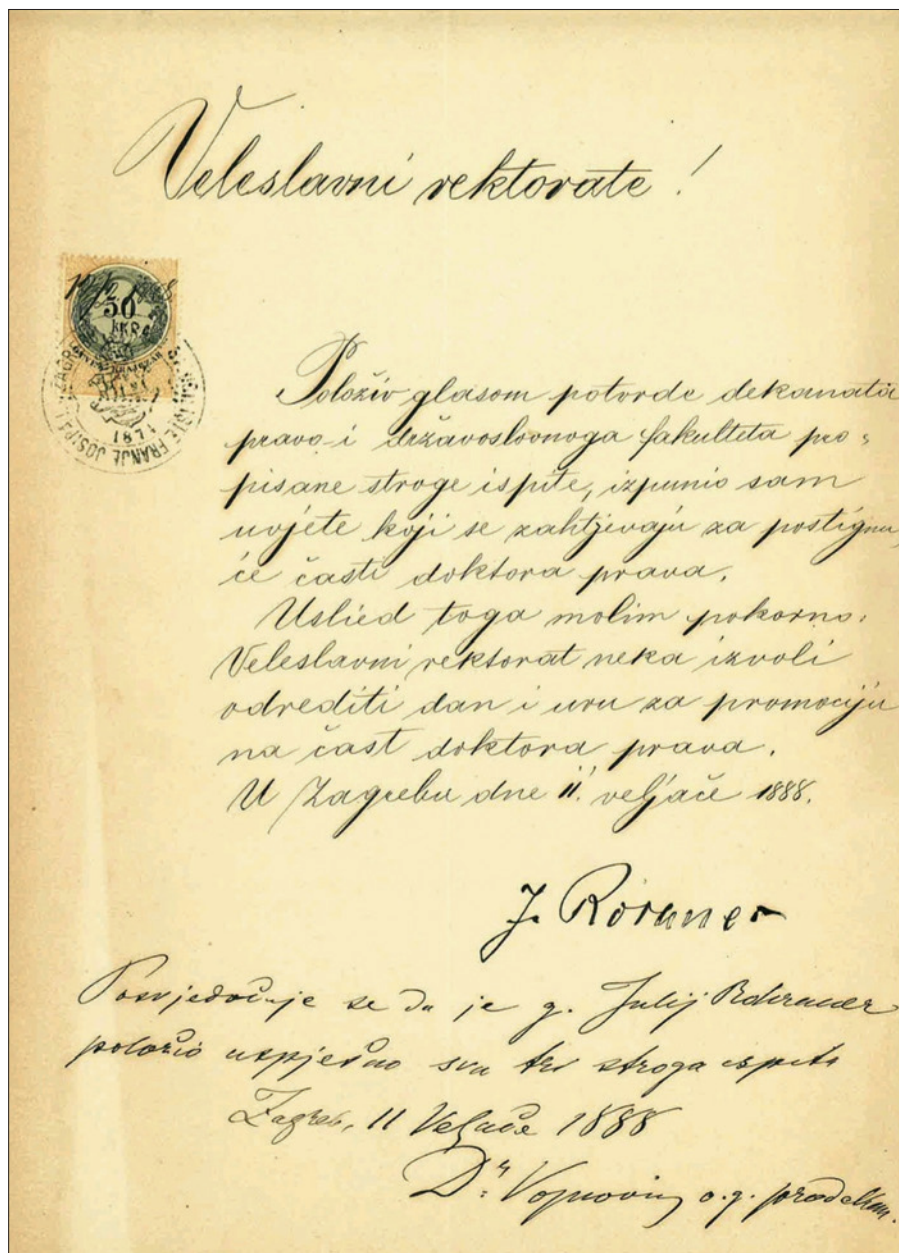 Veleslavni rektorate!
50
KR
1871
FRANJE JOSIPA I
ZAGR
Položiv glasom potvrde dekanata
pravo i državoslovnoga fakulteta pro-
pisane stroge ispite, izpunio sam
uvjete koji se zahtjevaju za postignu
će časti doktora prava.
Uslied toga molim pokorno:
Veleslavni rektorat neka izvoli
odrediti dan i uru za promociju
na čast doktora prava.
U Zagrebu dne 11. veljače 1888.
J. Rorauer
Posvjedočuje se da je g. Julij Rohrauer
položio uspješno sva tri stroga ispita
Zagreb, 11 Veljače 1888
Dr. Vojnović o.g. prodekan.